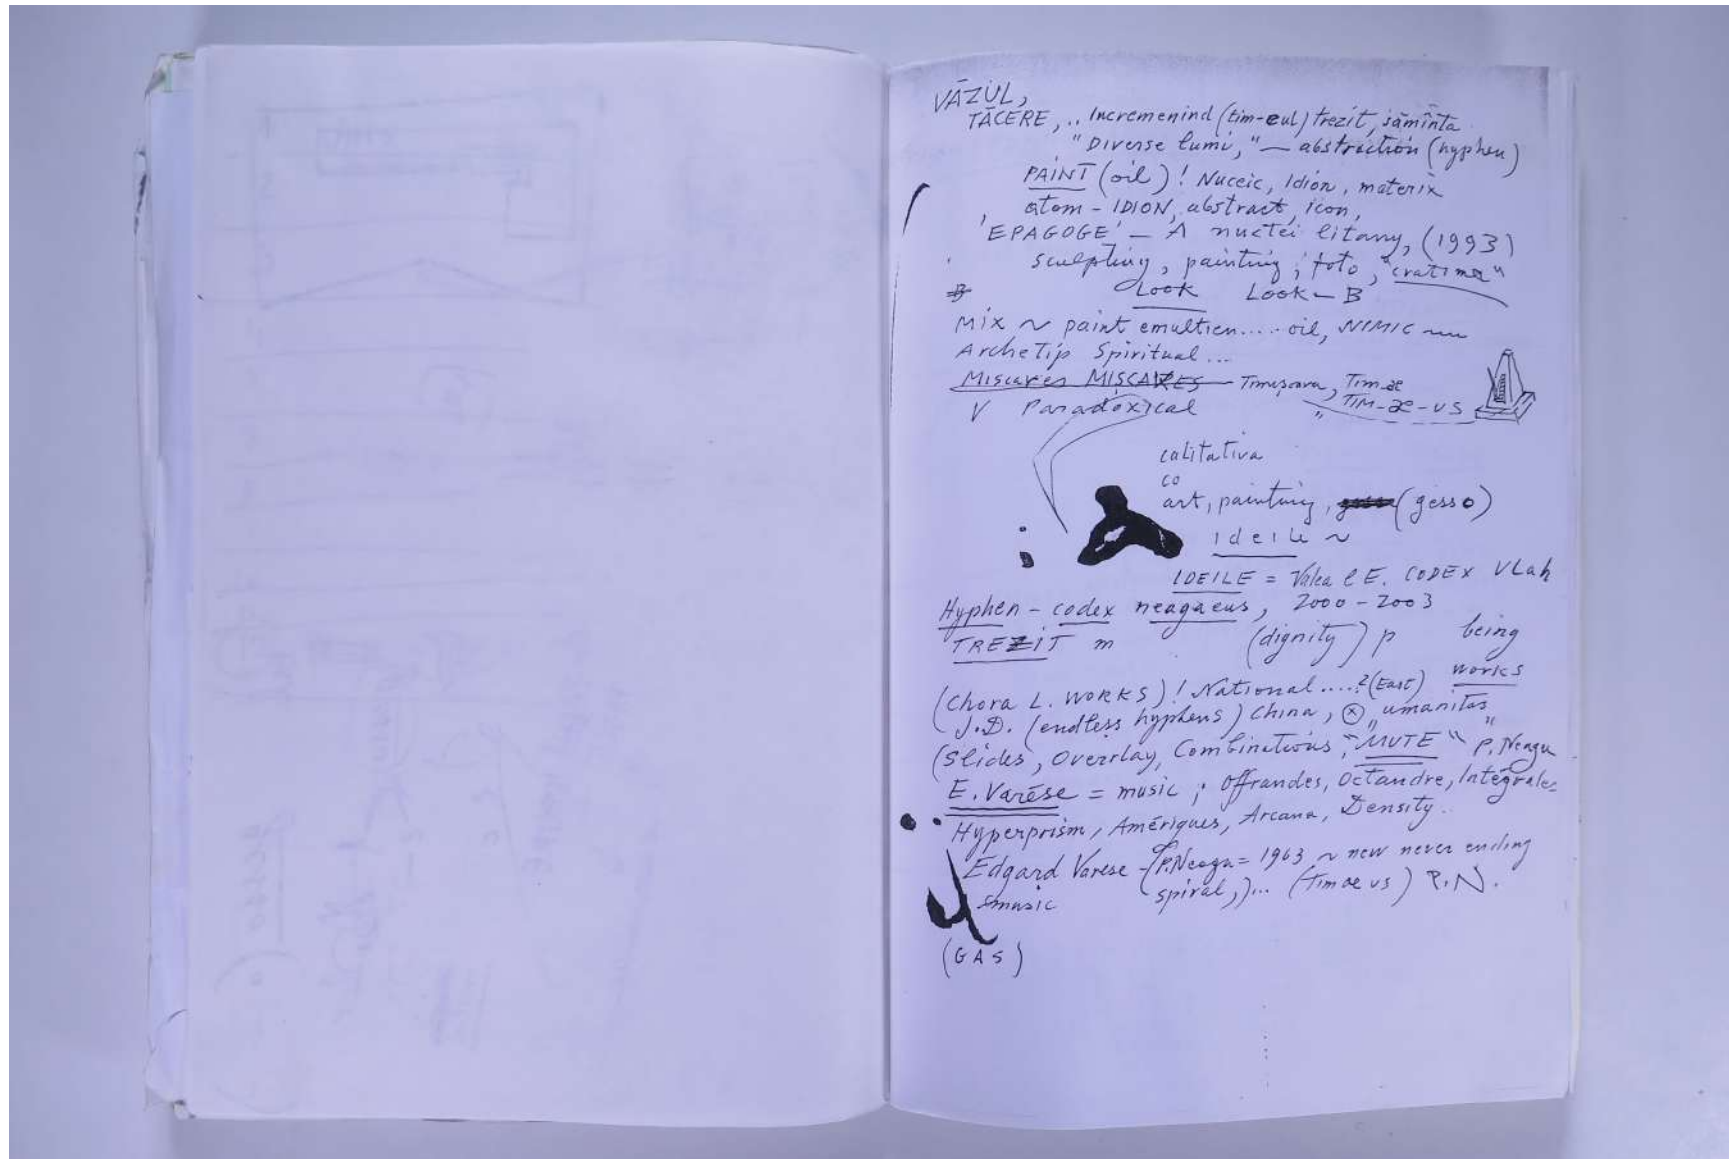 VĂZUL,
TĂCERE, .. Incremenind (tim-eul) trezit, sămînta
"Diverse lumi," — abstraction (hyphen)
PAINT (oil) ! Nuceic, Idion, materix
atom - IDION, abstract, icon,
'EPAGOGE' — A nuctei litany, (1993)
sculpting, painting, foto, "cratima"
LOOK LOOK — B
Mix ~ paint emultien..... oil, NIMIC ~
ArcheTip Spiritual...
Miscares MIȘCARES Timișoara, Tim-æ
" TIM-æ-us
V Paradoxical
calitativa
co
art, painting, (gesso)
Ideile ~
IDEILE = Valea l E. CODEX VLah
Hyphen - codex neagaeus, 2000 - 2003
TREZIT m (dignity) p being
(Chora L. WORKS) ! National .....? (East) works
J.D. (endless hyphens) China, ⊗ "umanitas"
(Slides, Overlay, Combinations, "MUTE" P. Neagu
E. Varése = music ; Offrandes, Octandre, Intégrales
Hyperprism, Amériques, Arcana, Density..
Edgard Varese - (P.Neagu = 1963 ~ new never ending
music spiral,)... (Timaeus) P.N.
(GAS)